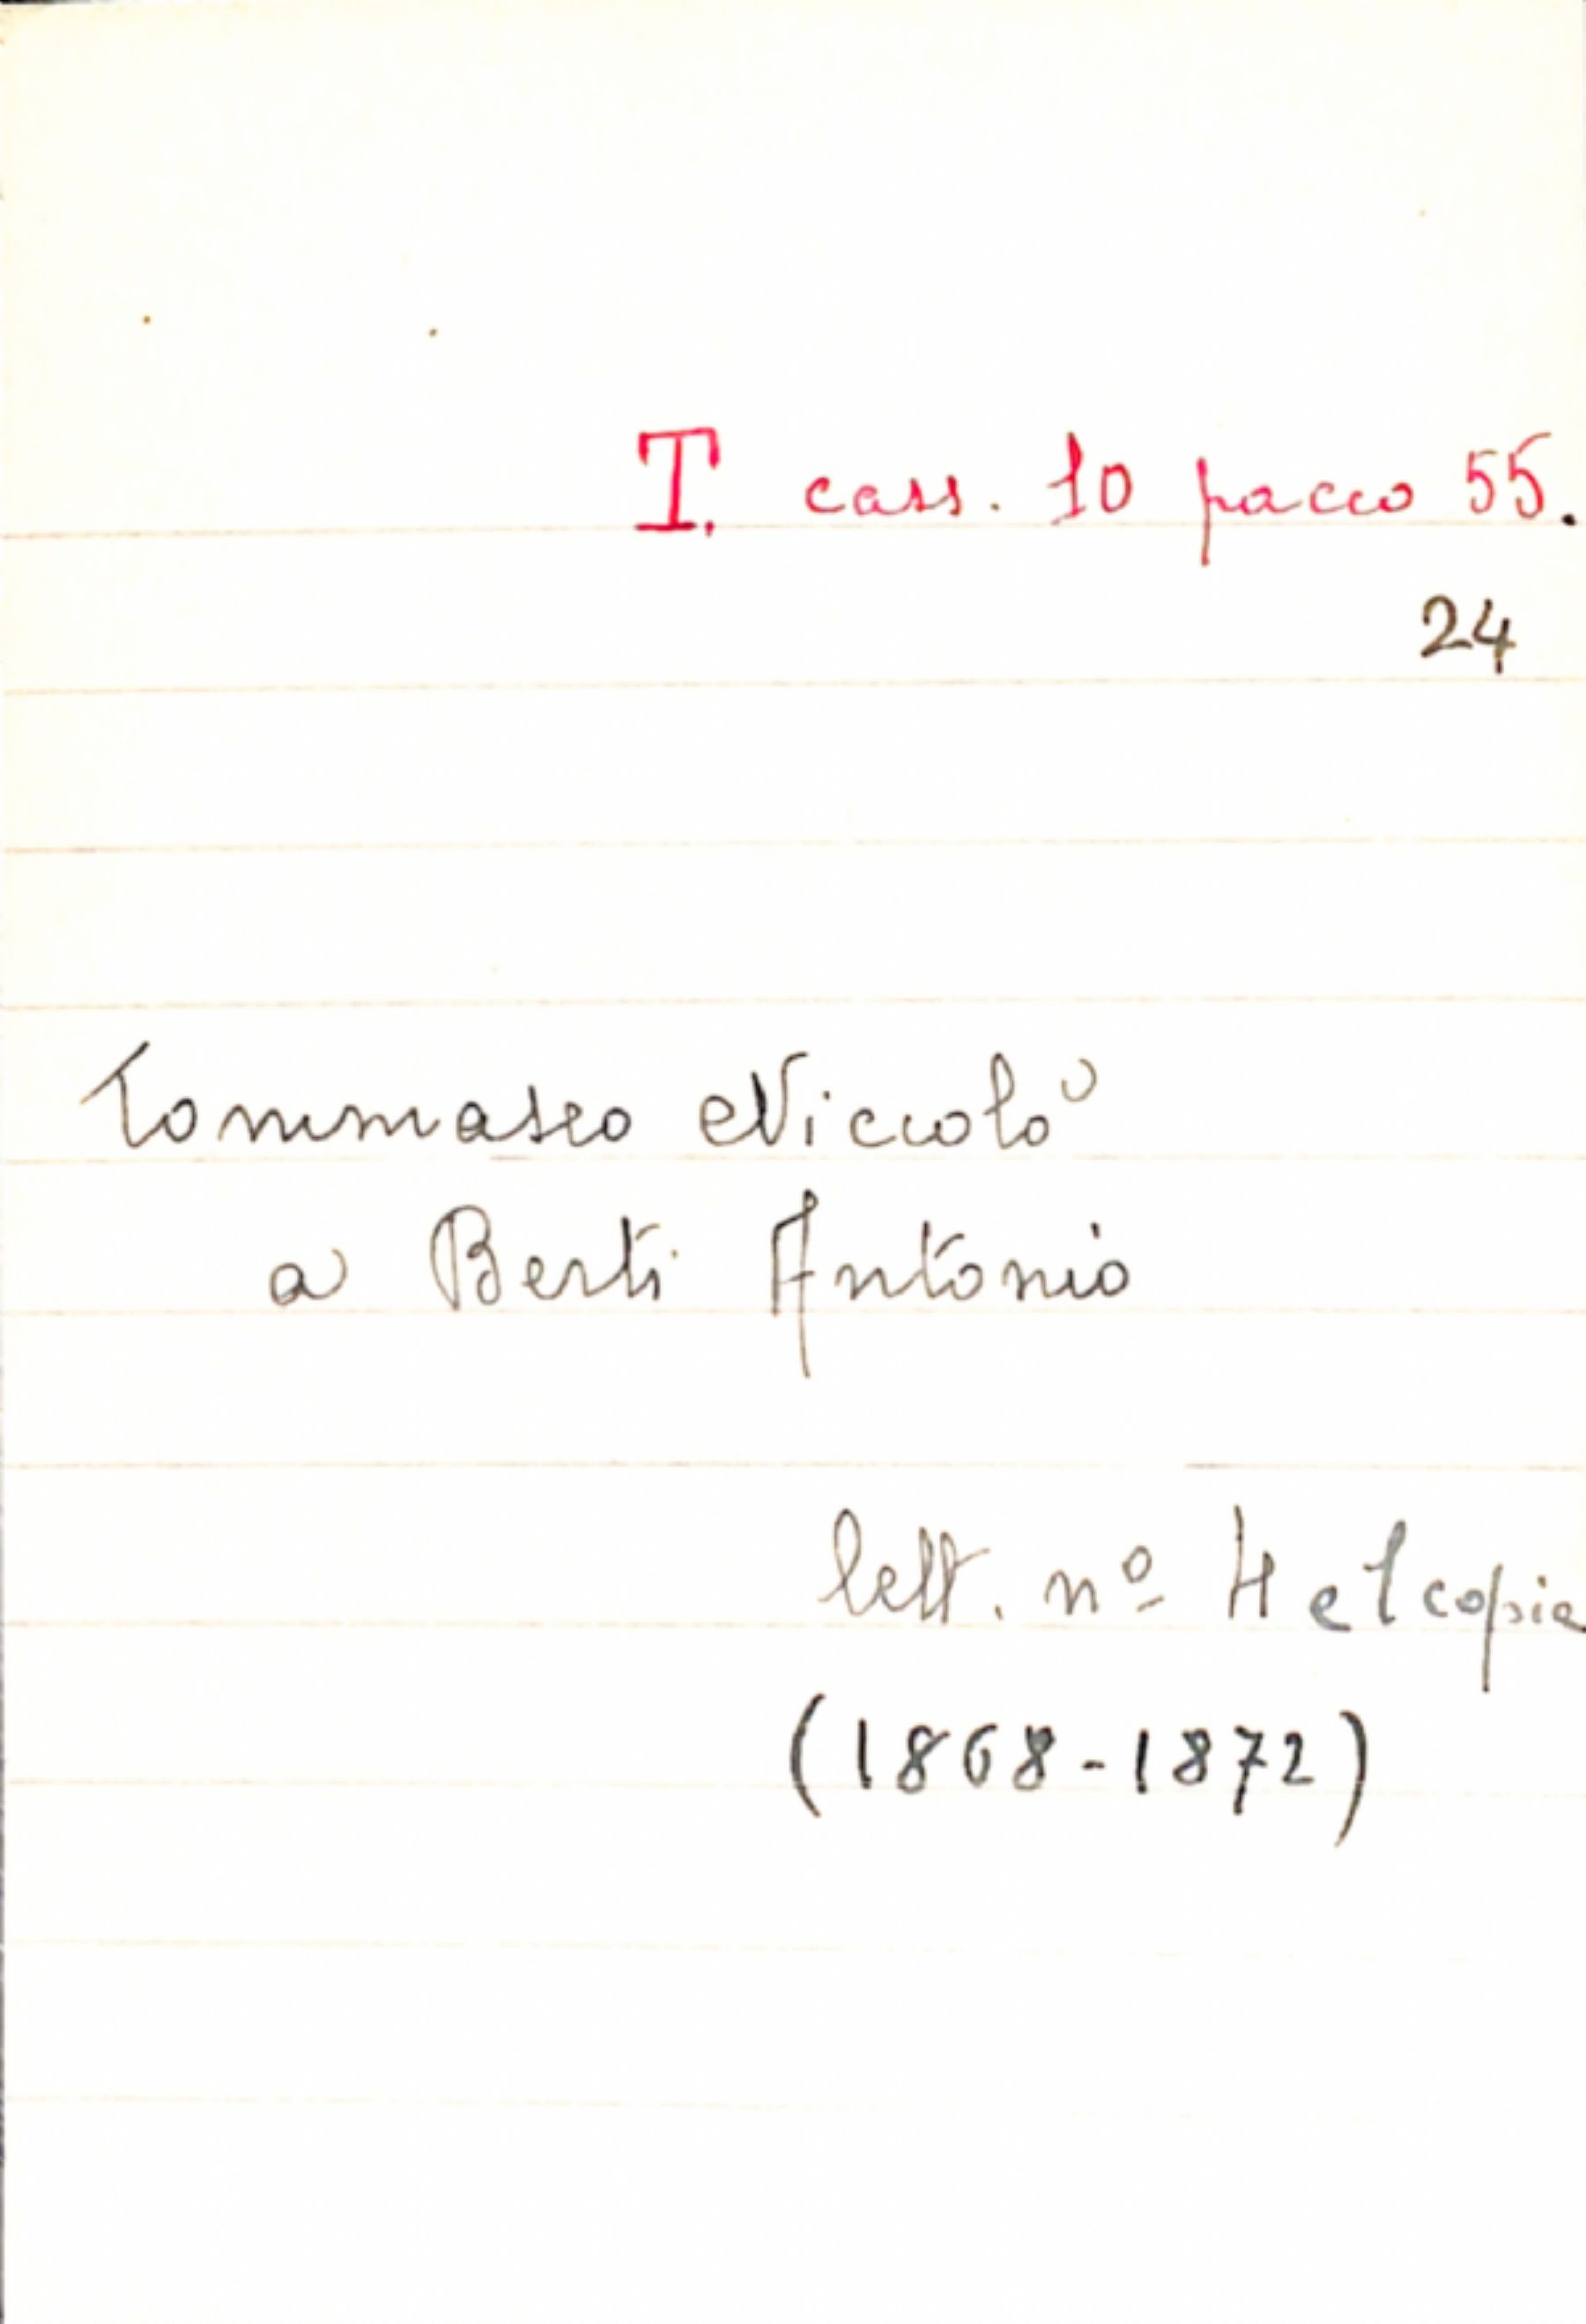 T. cass. 10 pacco 55.
24
Tommaseo Niccolò
a Berti Antonio
lett. nº 4 e 1 copia
(1868-1872)